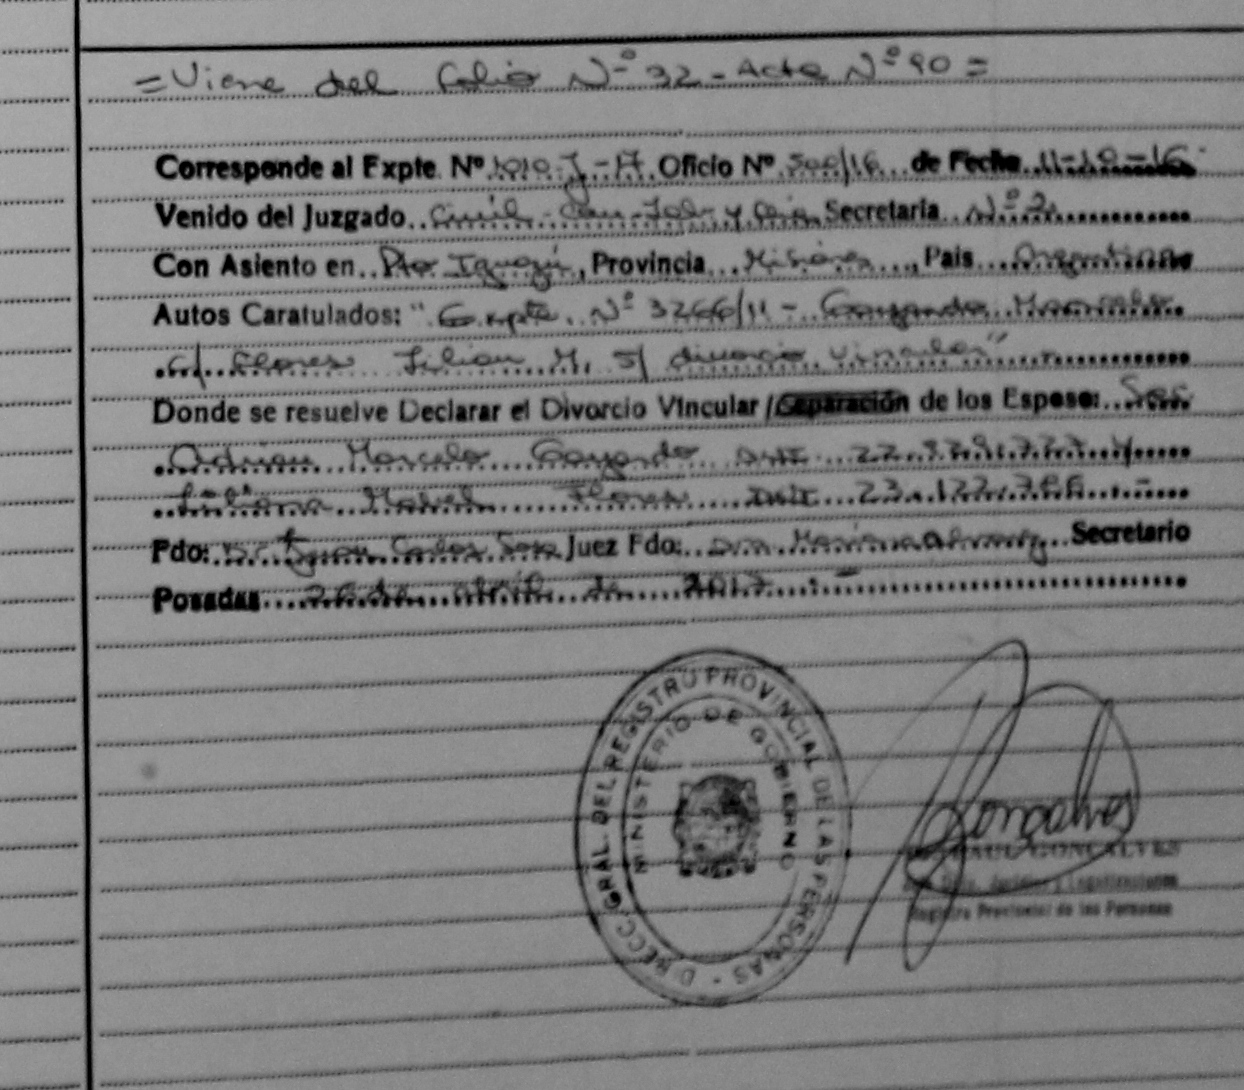 = Viene del Folio Nº 32 - Acta Nº 90 =
Corresponde al Expte. Nº 1010-J-17 Oficio Nº 500/16 de Fecha 11-10-16
Venido del Juzgado Civil - Com - Lab. y Flia. Secretaria Nº 2
Con Asiento en Pto. Iguazú, Provincia Misiones, Pais Argentina
Autos Caratulados: "Expte. Nº 3266/11 - Gayardo Marcelo
c/ Flores Lilian M. s/ divorcio vincular"
Donde se resuelve Declarar el Divorcio Vincular / Separación de los Esposos: Sres
Adrian Marcelo Gayardo DNI 22. y
Liliana Mabel Flores DNI 23.177.
Fdo: Dr. Juan Carlos Sosa Juez Fdo: Dra. Mariana Alvarez Secretario
Posadas 26 de abril de 2017.-
DIRECC. GRAL. DEL REGISTRO PROVINCIAL DE LAS PERSONAS -
MINISTERIO DE GOBIERNO
Gonçalves
RAUL GONCALVES
Registro Provincial de las Personas